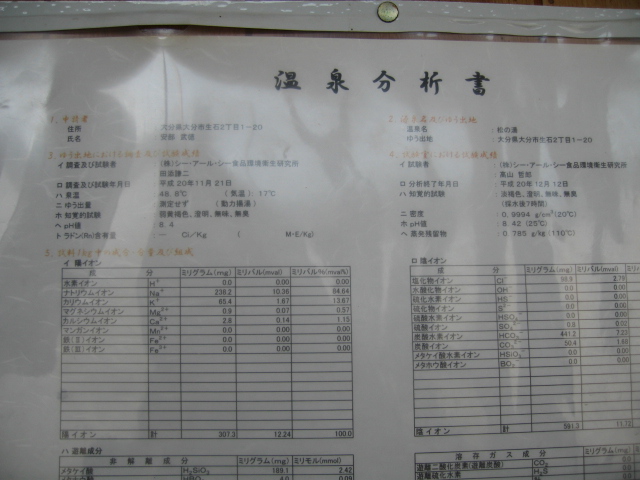 温泉分析書
1、申請者
住所 大分県大分市生石2丁目1-20
氏名
2、源泉名及びゆう出地
温泉名 : 松の湯
ゆう出地 : 大分県大分市生石2丁目1-20
3、ゆう出地における調査及び試験成績
イ 調査及び試験者 : (株)シー・アール・シー食品環境衛生研究所
田浜謙二
ロ 調査及び試験年月日 : 平成 20年11月 21日
ハ 泉温 : 48.8℃ ( 気温 ): 17℃
ニ ゆう出量 : 測定せず ( 動力揚湯 )
ホ 知覚的試験 : 弱黄褐色、澄明、無味、無臭
ヘ pH値 : 8.4
ト ラドン(Rn)含有量 : — Ci/Kg ( M-E/Kg)
4、試験室における試験成績
イ 試験者 : (株)シー・アール・シー食品環境衛生研究所
栗山 哲郎
ロ 分析終了年月日 : 平成 20年 12月 12日
ハ 知覚的試験 : 淡褐色、澄明、無味、無臭
(採水後7時間)
ニ 密度 : 0.9994 g/cm³(20℃)
ホ pH値 : 8.42 (25℃)
ヘ 蒸発残留物 : 0.785 g/kg(110℃)
5、試料1kg中の成分・分量及び組成
イ 陽イオン
成 分 ミリグラム(mg) ミリバル(mval) ミリバル%(mva%)
水素イオン H⁺ 0.0 0.00 0.00
ナトリウムイオン Na⁺ 238.2 10.36 84.64
カリウムイオン K⁺ 65.4 1.67 13.67
マグネシウムイオン Mg²⁺ 0.9 0.07 0.57
カルシウムイオン Ca²⁺ 2.8 0.14 1.15
マンガンイオン Mn²⁺ 0.0 0.00 0.00
鉄(Ⅱ)イオン Fe²⁺ 0.0 0.00 0.00
鉄(Ⅲ)イオン Fe³⁺ 0.0 0.00 0.00
陽イオン 計 307.3 12.24 100.0
ロ 陰イオン
成 分 ミリグラム(mg) ミリバル
塩化物イオン Cl⁻ 98.9 2.79
水酸化物イオン OH⁻ 0.0 0.00
硫化水素イオン HS⁻ 0.0 0.00
硫化物イオン S²⁻ 0.0 0.00
硫酸水素イオン HSO₄⁻ 0.0 0.00
硫酸イオン SO₄²⁻ 0.02
炭酸水素イオン HCO₃⁻ 441.2 7.23
炭酸イオン CO₃²⁻ 50.4 1.68
メタケイ酸水素イオン HSiO₃⁻ 0.0 0.00
メタホウ酸イオン BO₂⁻ 0.0 0.00
陰イオン 計 591.3 11.72
ハ 遊離成分
非解離成分 ミリグラム(mg) ミリモル(mmol)
メタケイ酸 H₂SiO₃ 189.1 2.42
溶存ガス成分 ミリグラム(mg)
遊離二酸化炭素(遊離炭酸) CO₂
遊離硫化水素 H₂S